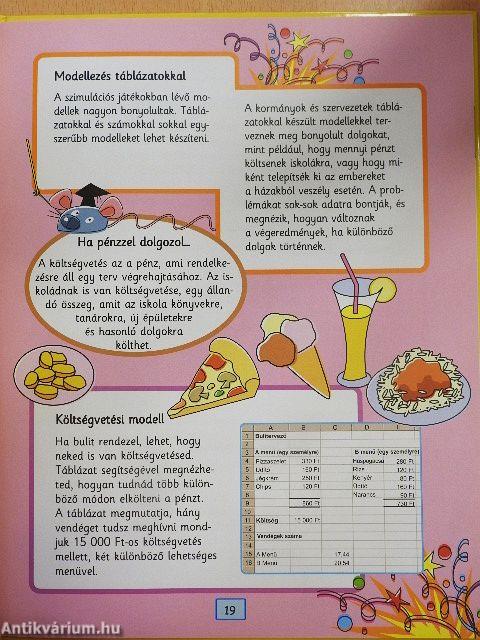 Modellezés táblázatokkal
A szimulációs játékokban lévő mo-
dellek nagyon bonyolultak. Táblá-
zatokkal és számokkal sokkal egy-
szerűbb modelleket lehet készíteni.
A kormányok és szervezetek táblá-
zatokkal készült modellekkel ter-
veznek meg bonyolult dolgokat,
mint például, hogy mennyi pénzt
költsenek iskolákra, vagy hogy mi-
ként telepítsék ki az embereket
a házakból veszély esetén. A prob-
lémákat sok-sok adatra bontják, és
megnézik, hogyan változnak
a végeredmények, ha különböző
dolgok történnek.
Ha pénzzel dolgozol...
A költségvetés az a pénz, ami rendelke-
zésre áll egy terv végrehajtásához. Az is-
koládnak is van költségvetése, egy állan-
dó összeg, amit az iskola könyvekre,
tanárokra, új épületekre
és hasonló dolgokra
költhet.
Költségvetési modell
Ha bulit rendezel, lehet, hogy
neked is van költségvetésed.
Táblázat segítségével megnézhe-
ted, hogyan tudnád több külön-
böző módon elkölteni a pénzt.
A táblázat megmutatja, hány
vendéget tudsz meghívni mond-
juk 15 000 Ft-os költségvetés
mellett, két különböző lehetséges
menüvel.
A B C D
1 Bulitervező
2
3 A menü (egy személyre) B menü (egy személyre)
4 Pizzaszelet 330 Ft Húspogácsa 280 Ft
5 Üdítő 160 Ft Rizs 120 Ft
6 Jégkrém 250 Ft Kenyér 80 Ft
7 Chips 120 Ft Üdítő 160 Ft
8 Narancs 90 Ft
9 860 Ft 730 Ft
11 Költség 15 000 Ft
13 Vendégek száma
15 A Menü 17,44
16 B Menü 20,54
19
Antikvárium.hu